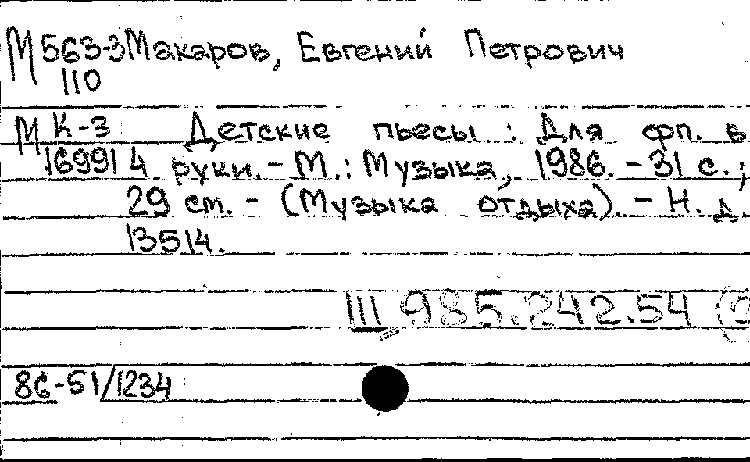 М563-3 Макаров, Евгений Петрович
110
М К-3 Детские пьесы : Для фп. в
16991 4 руки. - М. : Музыка, 1986. - 31 с. ;
29 см. - (Музыка отдыха). - Н. д.
13514.
III 985.242.54 (2
86-51/1234